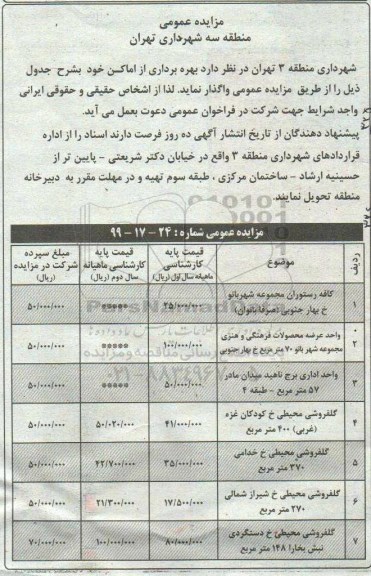 مزایده عمومی
منطقه سه شهرداری تهران
شهرداری منطقه ۳ تهران در نظر دارد بهره برداری از اماکن خود بشرح جدول
ذیل را از طریق مزایده عمومی واگذار نماید. لذا از اشخاص حقیقی و حقوقی ایرانی
واجد شرایط جهت شرکت در فراخوان عمومی دعوت بعمل می آید.
پیشنهاد دهندگان از تاریخ انتشار آگهی ده روز فرصت دارند اسناد را از اداره
قراردادهای شهرداری منطقه ۳ واقع در خیابان دکتر شریعتی - پایین تر از
حسینیه ارشاد - ساختمان مرکزی ، طبقه سوم تهیه و در مهلت مقرر به دبیرخانه
منطقه تحویل نمایند.
مزایده عمومی شماره : ۲۴ - ۱۷ - ۹۹
ردیف موضوع قیمت پایه کارشناسی ماهیانه سال اول (ریال) قیمت پایه کارشناسی ماهیانه سال دوم (ریال) مبلغ سپرده شرکت در مزایده (ریال)
۱ کافه رستوران مجموعه شهربانو خ بهار جنوبی (صرفا بانوان) ۲۵/۰۰۰/۰۰۰ ***** ۵۰/۰۰۰/۰۰۰
۲ واحد عرضه محصولات فرهنگی و هنری مجموعه شهر بانو ۷۰ متر مربع خ بهار جنوبی ۱۰۰/۰۰۰/۰۰۰ ***** ۵۰/۰۰۰/۰۰۰
۳ واحد اداری برج ناهید میدان مادر ۵۷ متر مربع - طبقه ۴ ۵۰/۰۰۰/۰۰۰ ***** ۵۰/۰۰۰/۰۰۰
۴ گلفروشی محیطی خ کودکان غزه (غربی) ۴۰۰ متر مربع ۴۱/۰۰۰/۰۰۰ ۵۰/۰۲۰/۰۰۰ ۵۰/۰۰۰/۰۰۰
۵ گلفروشی محیطی خ خدامی ۳۷۰ متر مربع ۳۵/۰۰۰/۰۰۰ ۴۲/۷۰۰/۰۰۰ ۵۰/۰۰۰/۰۰۰
۶ گلفروشی محیطی خ شیراز شمالی ۲۷۰ متر مربع ۱۷/۵۰۰/۰۰۰ ۲۱/۳۰۰/۰۰۰ ۵۰/۰۰۰/۰۰۰
۷ گلفروشی محیطی خ دستگردی نبش بخارا ۱۴۸ متر مربع ۸۰/۰۰۰/۰۰۰ ۱۰۰/۰۰۰/۰۰۰ ۷۰/۰۰۰/۰۰۰